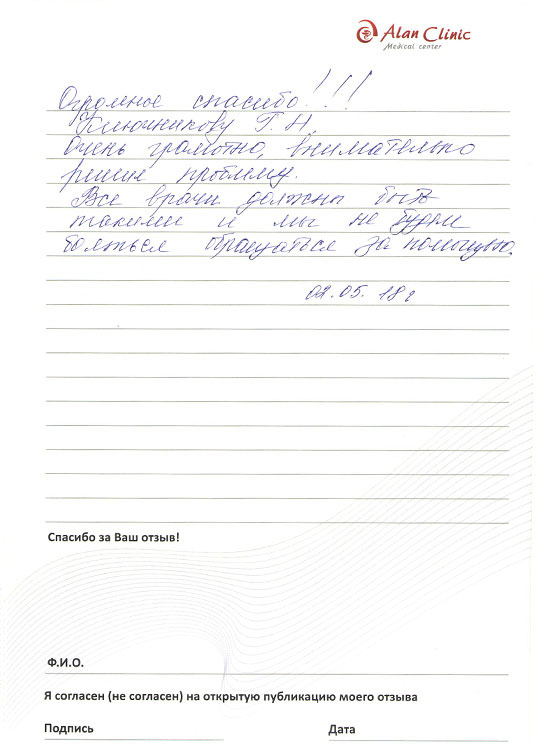 Alan Clinic
Medical center
Огромное спасибо!!!
Ключникову Г. Н.
Очень грамотно, внимательно
решил проблему.
Все врачи должны быть
такими и мы не будем
бояться обращаться за помощью.
02.05. 18 г
Спасибо за Ваш отзыв!
Ф.И.О.
Я согласен (не согласен) на открытую публикацию моего отзыва
Подпись Дата